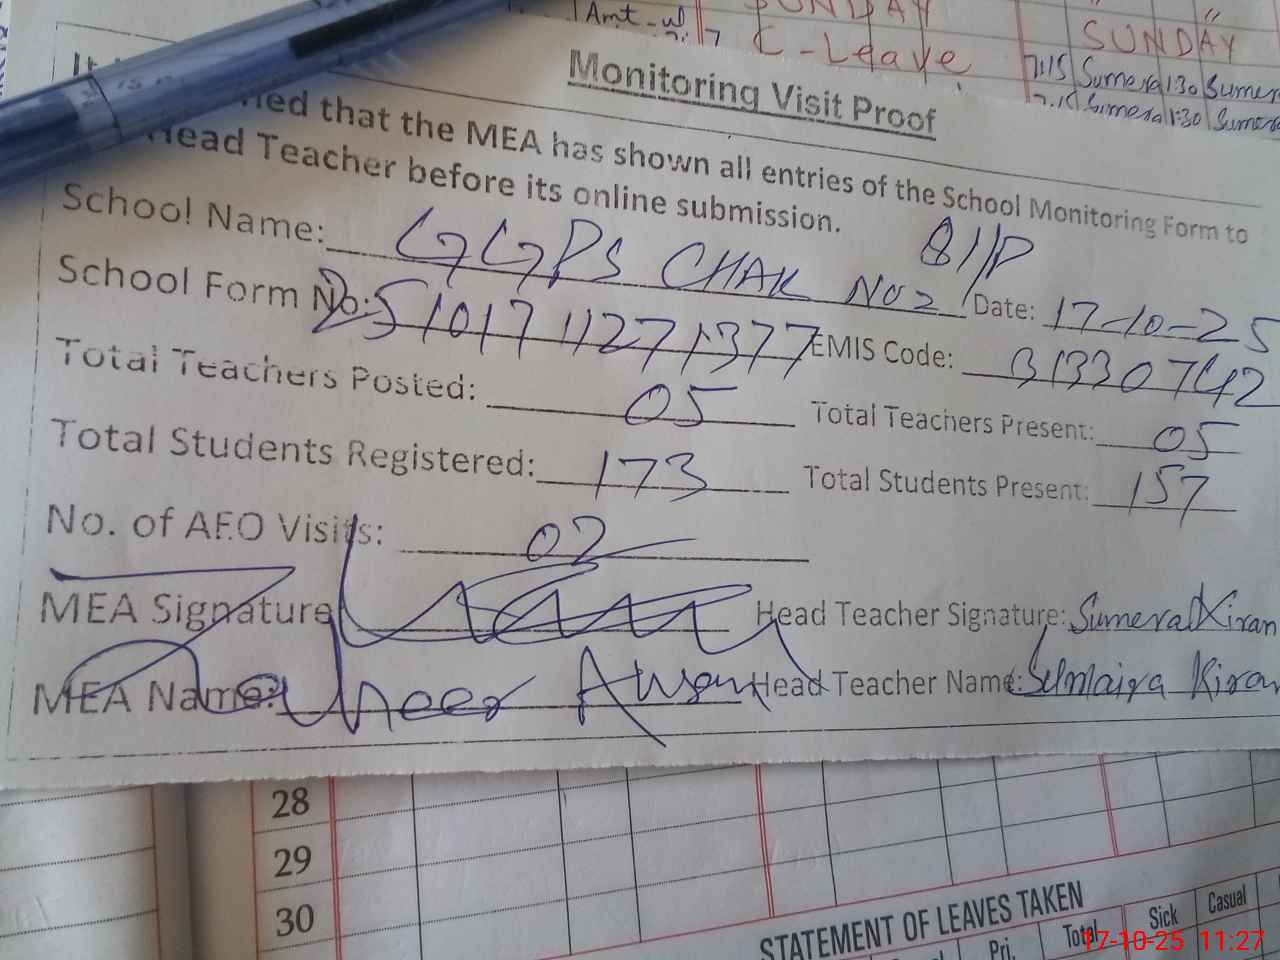 Amt
SUNDAY
C-Leave
SUNDAY
7:15 Sumera 1:30 Sumera
7:15 Sumera 1:30 Sumera
Monitoring Visit Proof
that the MEA has shown all entries of the School Monitoring Form to
Head Teacher before its online submission.
School Name: GGPS CHAK NO 2 81/P Date: 17-10-25
School Form No: 25101711271377 EMIS Code: 31330742
Total Teachers Posted: 05 Total Teachers Present: 05
Total Students Registered: 173 Total Students Present: 157
No. of AEO Visits: 02
MEA Signature Head Teacher Signature: Sumera Kiran
MEA Name: Zaheer Awan Head Teacher Name: Sumaira Kiran
28
29
30
STATEMENT OF LEAVES TAKEN
Pri. Total Sick Casual
17-10-25 11:27